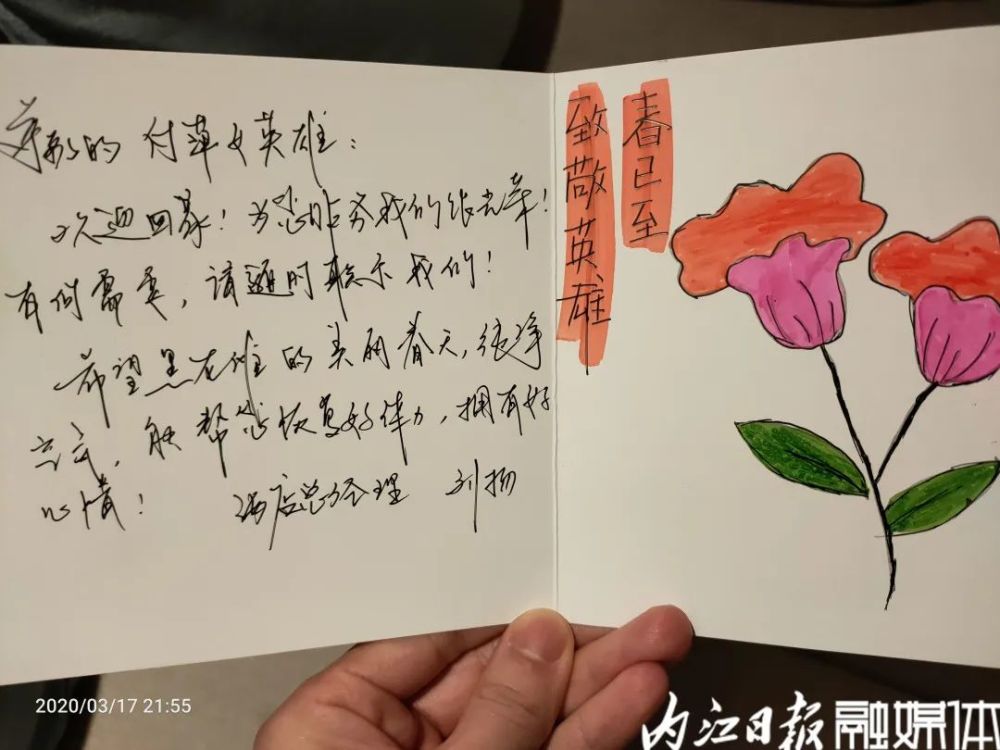 尊敬的 付萍女英雄：
欢迎回家！为您服务我们很光荣！
有何需要，请随时联系我们！
希望黑龙滩的美丽春天，很净
，能帮您恢复好体力，拥有好
心情！ 酒店总经理 刘扬
春已至
致敬英雄
2020/03/17 21:55
内江日报融媒体